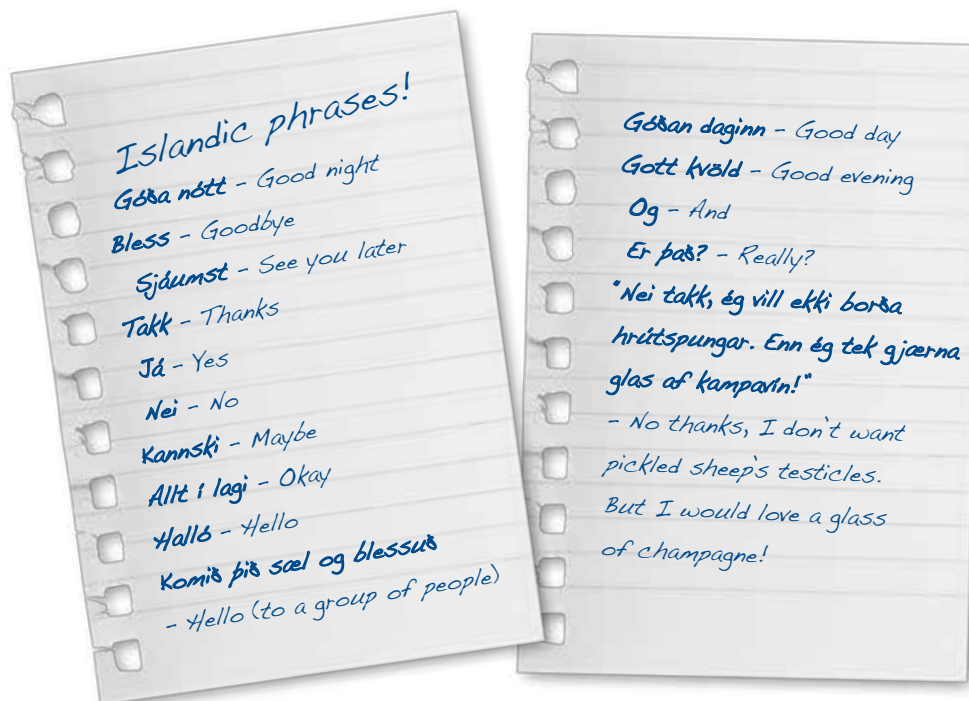 Islandic phrases!
Góða nótt – Good night
Bless – Goodbye
Sjáumst – See you later
Takk – Thanks
Já – Yes
Nei – No
Kannski – Maybe
Allt í lagi – Okay
Halló – Hello
Komið þið sæl og blessuð
– Hello (to a group of people)
Góðan daginn – Good day
Gott kvöld – Good evening
Og – And
Er það? – Really?
"Nei takk, ég vill ekki borða
hrútspungar. Enn ég tek gjærna
glas af kampavín!"
– No thanks, I don't want
pickled sheep's testicles.
But I would love a glass
of champagne!